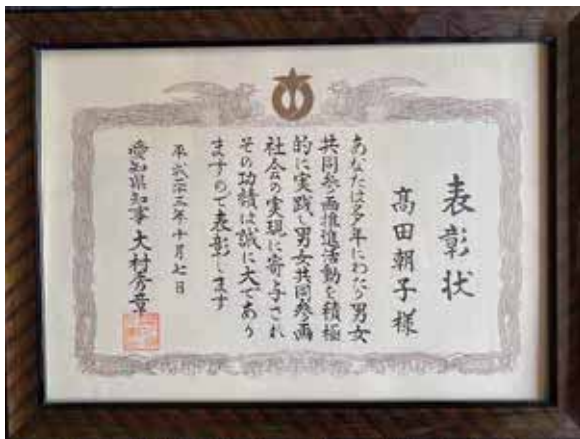 表彰状
髙田朝子様
あなたは多年にわたり男女
共同参画推進活動を積極
的に実践し男女共同参画
社会の実現に寄与され
その功績は誠に大であり
ますので表彰します
平成二十三年十月七日
愛知県知事 大村秀章